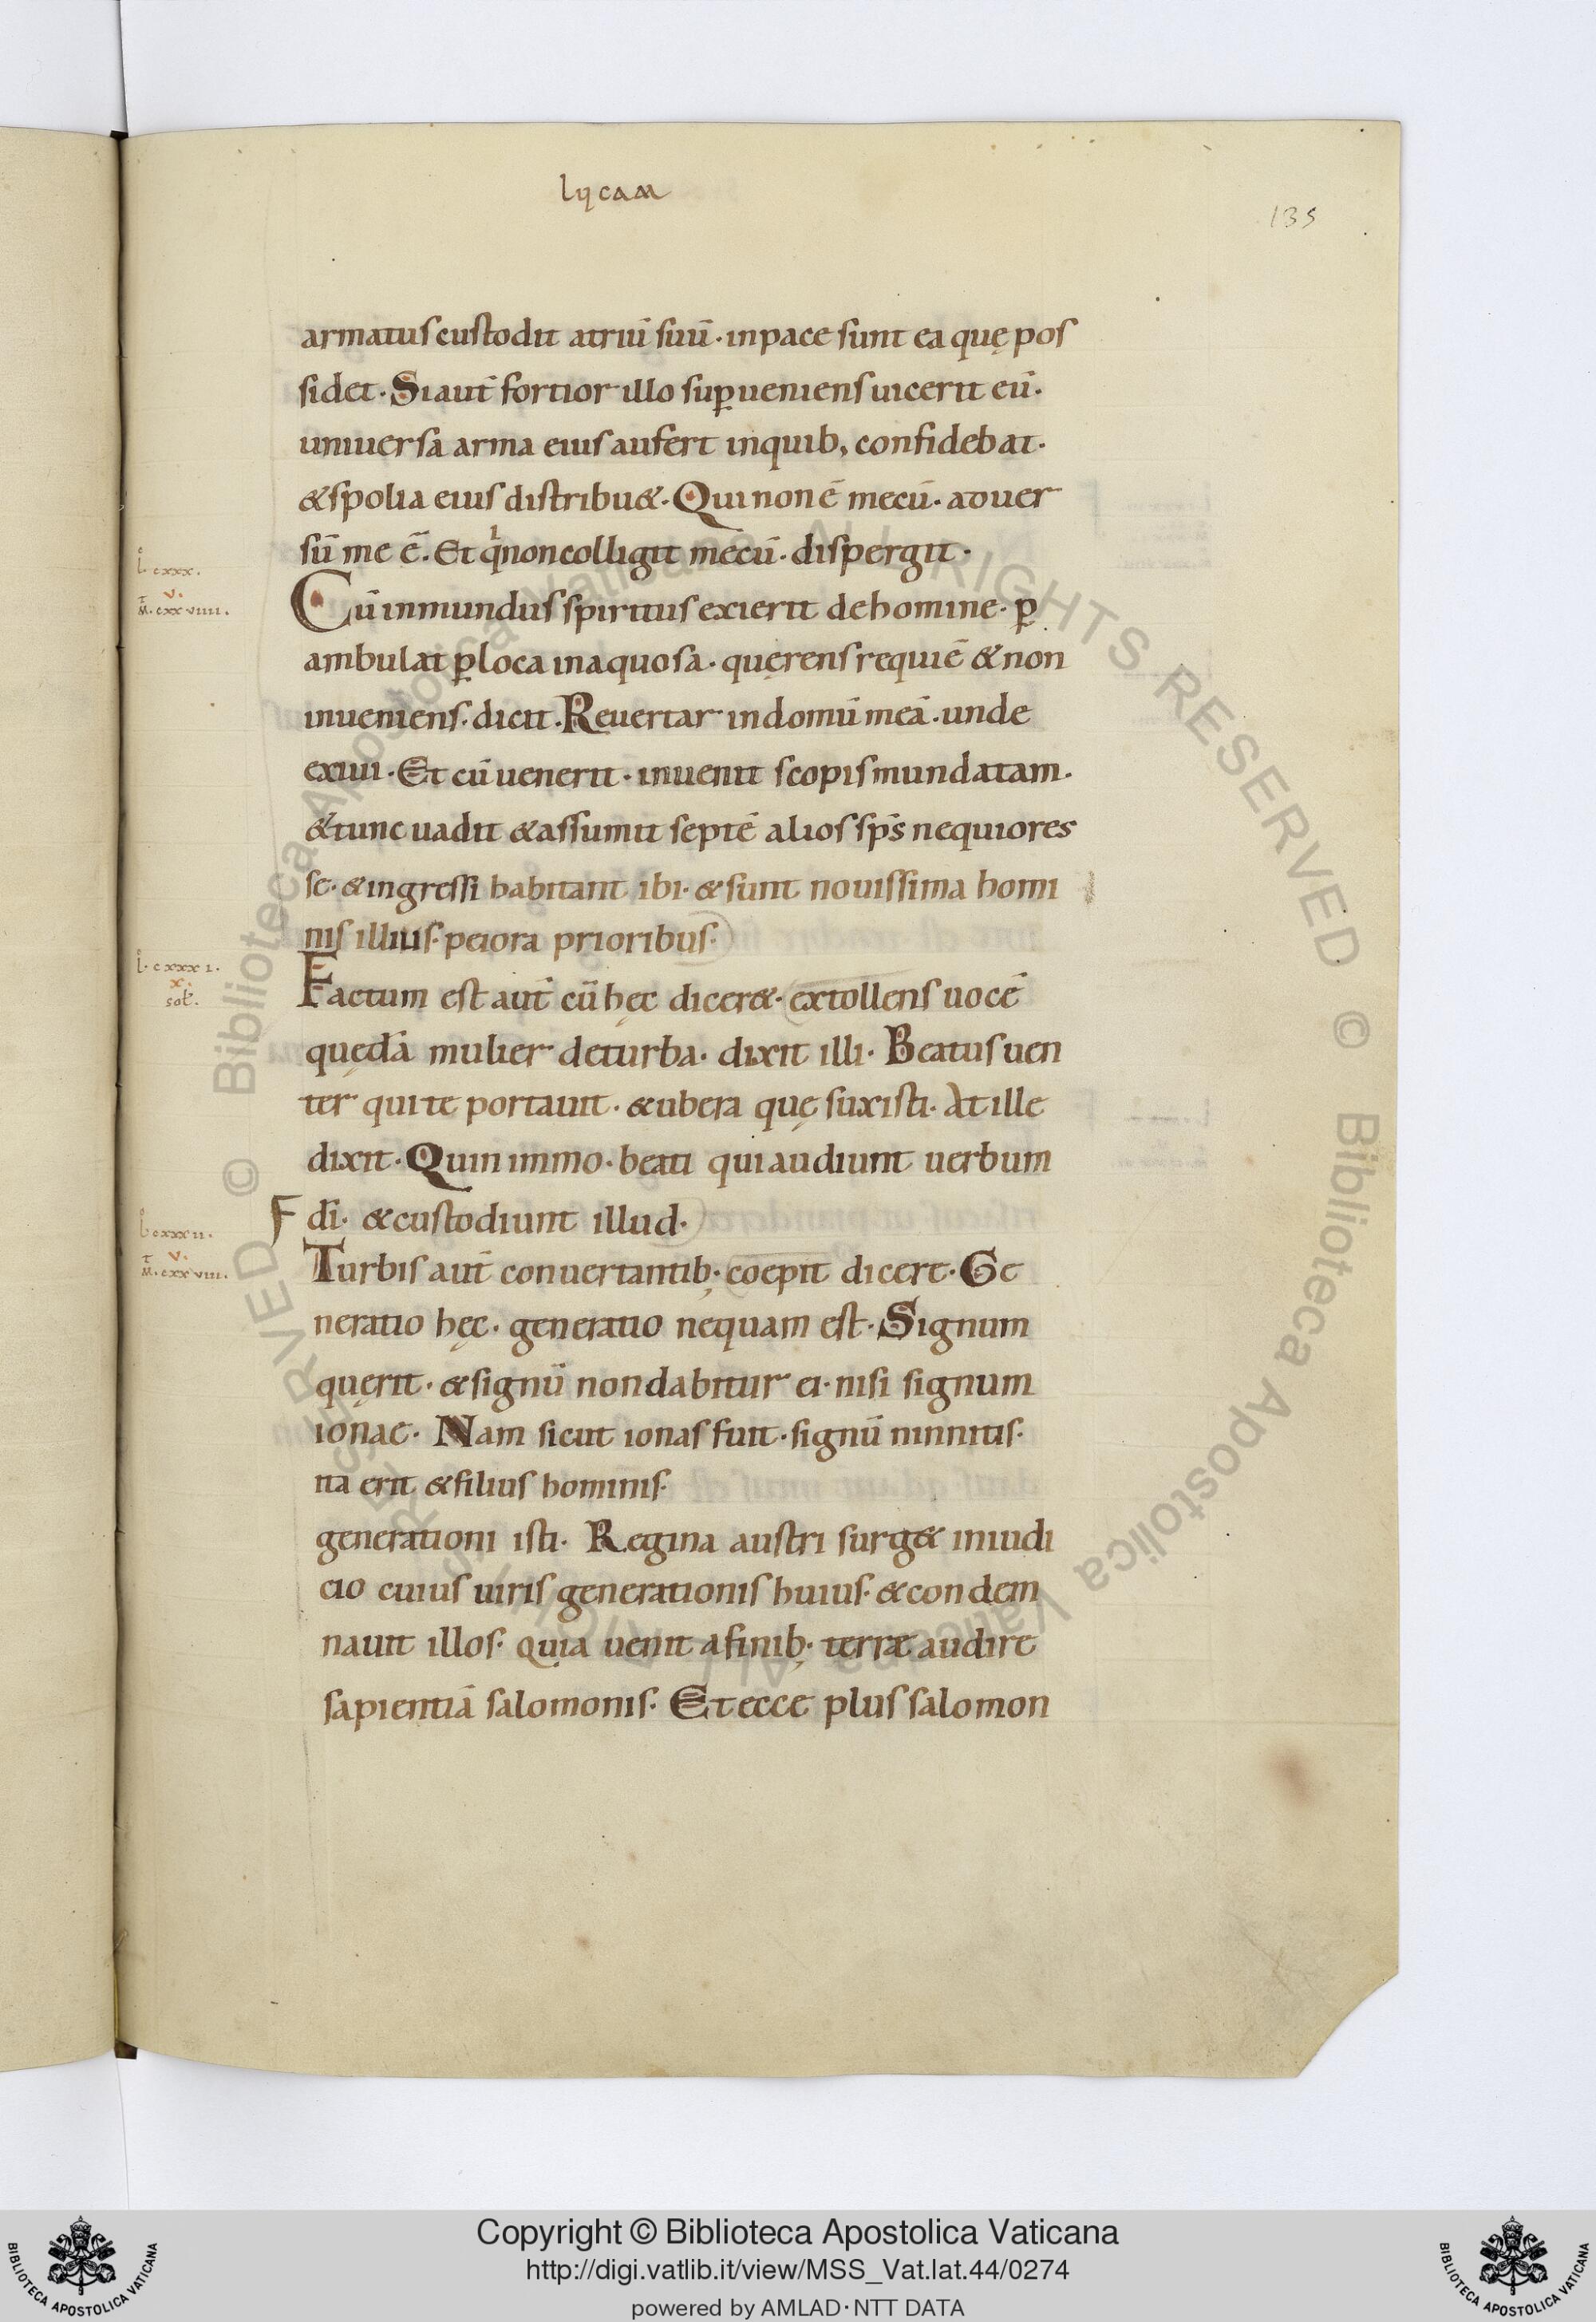 lycam
135
armatus custodit atriū suū · in pace sunt ea quę pos
sidet · Si aut̄ fortior illo suꝑueniens uicerit eū ·
uniuersa arma eius aufert in quib, confidebat ·
& spolia eius distribu& · Qui non ē mecū · aduer
sū me ē · Et qͥ non colligit mecū · dispergit ·
L · cxxx ·
v ·
M · cxxviiii ·
Cū inmundus spiritus exierit de homine · ꝑ
ambulat ꝑ loca inaquosa · quęrens requiē & non
inueniens · dicit · Reuertar in domū meā · unde
exiui · Et cū uenerit · inuenit scopis mundatam ·
& tunc uadit & assumit septē alios sp̄s nequiores
se · & ingressi habitant ibi · & sunt nouissima homi
nis illius · peiora prioribus ·
L · cxxxi ·
x ·
sol ·
Factum est aut̄ cū hęc dicer& · extollens uocē
quędā mulier de turba · dixit illi · Beatus uen
ter qui te portauit · & ubera quę suxisti · At ille
dixit · Quin immo · beati qui audiunt uerbum
F dī · & custodiunt illud ·
L cxxxii ·
v ·
M · cxxviii ·
Turbis aut̄ conuertantib; · coepit dicere · Ge
neratio hęc · generatio nequam est · Signum
quęrit · & signū non dabitur ei · nisi signum
ionae · Nam sicut ionas fuit · signū ninnitis ·
ita erit & filius hominis ·
generationi isti · Regina austri surg& in iudi
cio cuius uiris generationis huius · & condem
nauit illos · quia uenit a finib; · terrae audire
sapientiā salomonis · Et ecce plus salomon
Copyright © Biblioteca Apostolica Vaticana
http://digi.vatlib.it/view/MSS_Vat.lat.44/0274
powered by AMLAD · NTT DATA
BIBLIOTECA APOSTOLICA VATICANA
BIBLIOTECA APOSTOLICA VATICANA
© Biblioteca Apostolica Vaticana ALL RIGHTS RESERVED
© Biblioteca Apostolica Vaticana ALL RIGHTS RESERVED